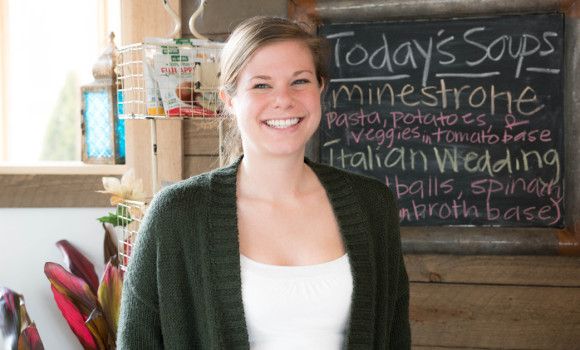 Today's Soups
minestrone
pasta, potatoes, &
veggies in tomato base
Italian Wedding
tballs, spinach
n broth base)